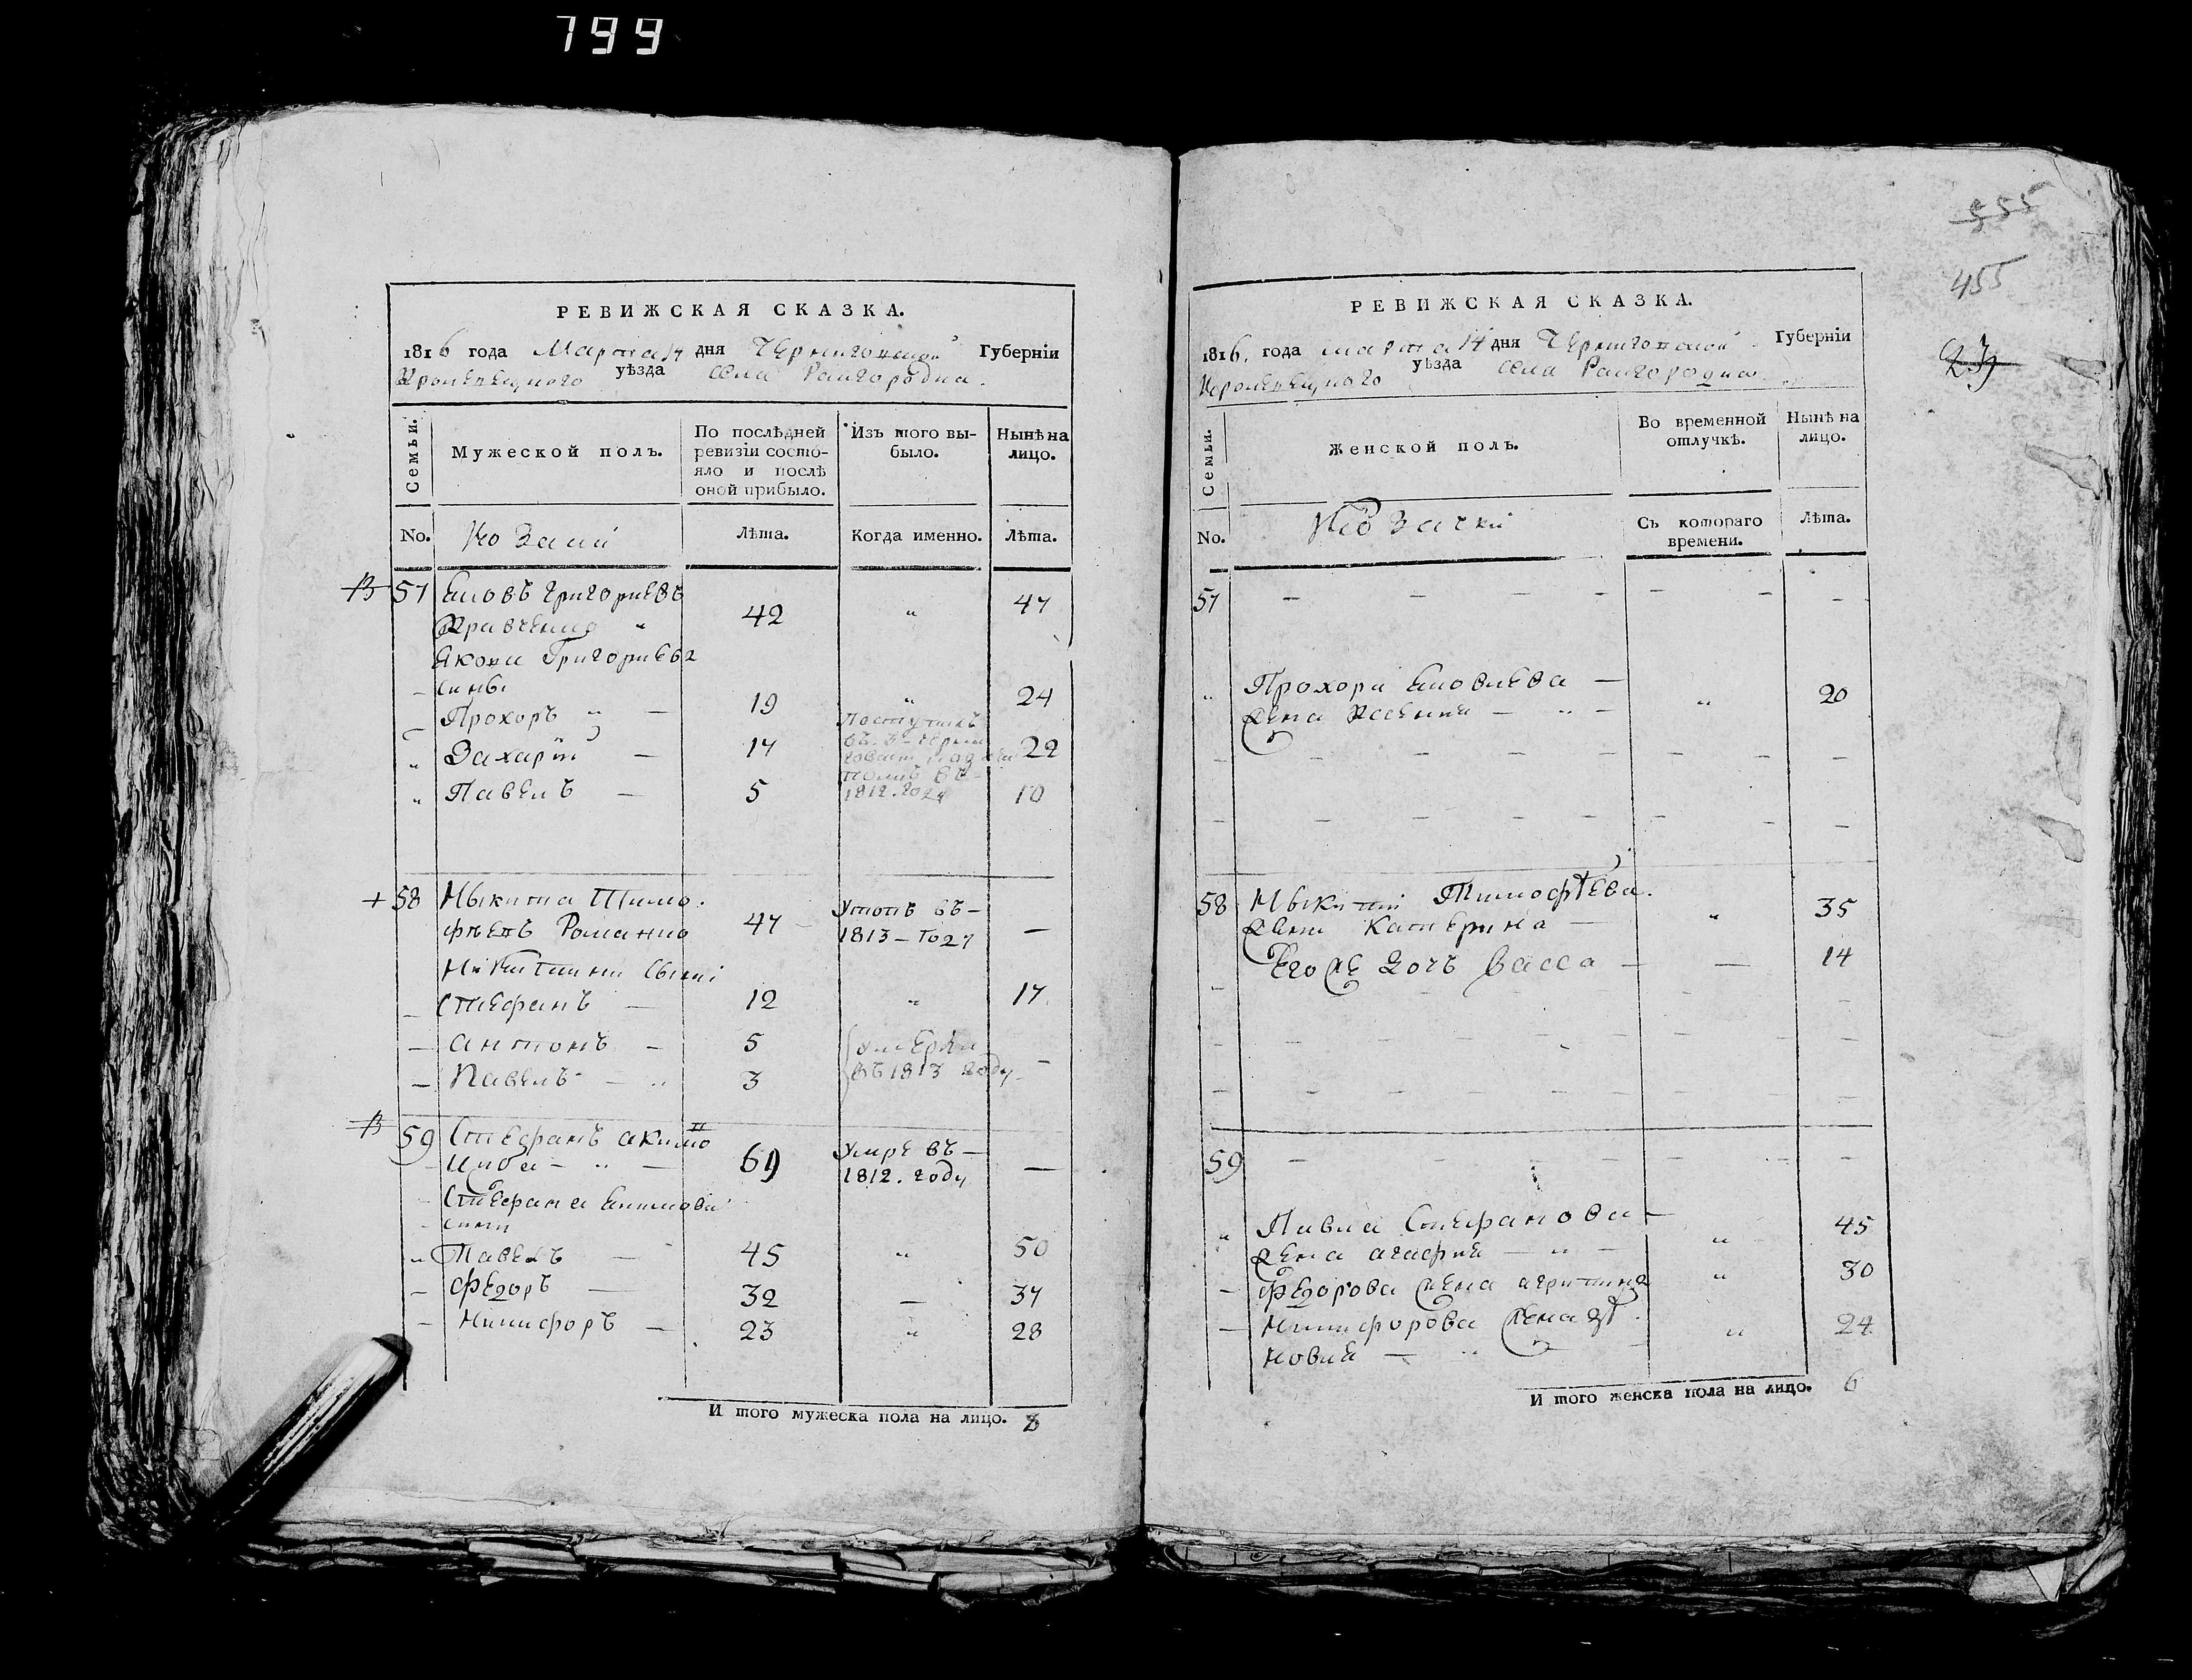 799
555
455
РЕВИЖСКАЯ СКАЗКА.
1816 года Марта 14 дня Черниговской Губерніи
Кролевецкого уѣзда села Райгородка.
Семьи.
Мужеской полъ.
По послѣдней ревизіи состояло и послѣ оной прибыло.
Изъ того выбыло.
Нынѣ на лицо.
No.
Козаки
Лѣта.
Когда именно.
Лѣта.
57 Яковъ Григориевъ
Кравченко " 42 " 47
Якова Григориева
сины
Прохоръ " — 19 " 24
" Захарїй — 17 22
поступилъ
въ 3
полкъ въ
1812. году
" Павелъ — 5 10
+ 58 Никита Тимо.
фѣевъ Романко 47 — —
Утопъ въ —
1813 — году
Никитини сыни
— Стефанъ — 12 " 17.
— Антонъ — 5 —
— Павелъ — " 3
умерли
въ 1813 году
59 Стефанъ Акимо в
Циба — " — 69 —
Умре въ —
1812. году
Стефана Акимова
сини
" Павелъ — 45 " 50
— Федоръ — 32 — 37
— Никифоръ — 23 " 28
И того мужеска пола на лицо. 8
РЕВИЖСКАЯ СКАЗКА.
1816. года марта 14 дня Черниговской Губерніи
Кролевецкого уѣзда села Райгородка
Семьи.
Женской полъ.
Во временной отлучкѣ.
Нынѣ на лицо.
No.
Козачки
Съ котораго времени.
Лѣта.
57 — — — — — — —
" Прохора Яковлева —
жена Ксения — " — " 20
58 Никити Тимофѣева.
жена Катерина — " 35
Его же дочъ Васса — — 14
59 — — — — — — —
" Павла Стефанова —
жена Агафия — " — " 45
— Федорова жена " 30
— Никифорова жена Зѣ.
новия — " — " 24
И того женска пола на лицо. 6